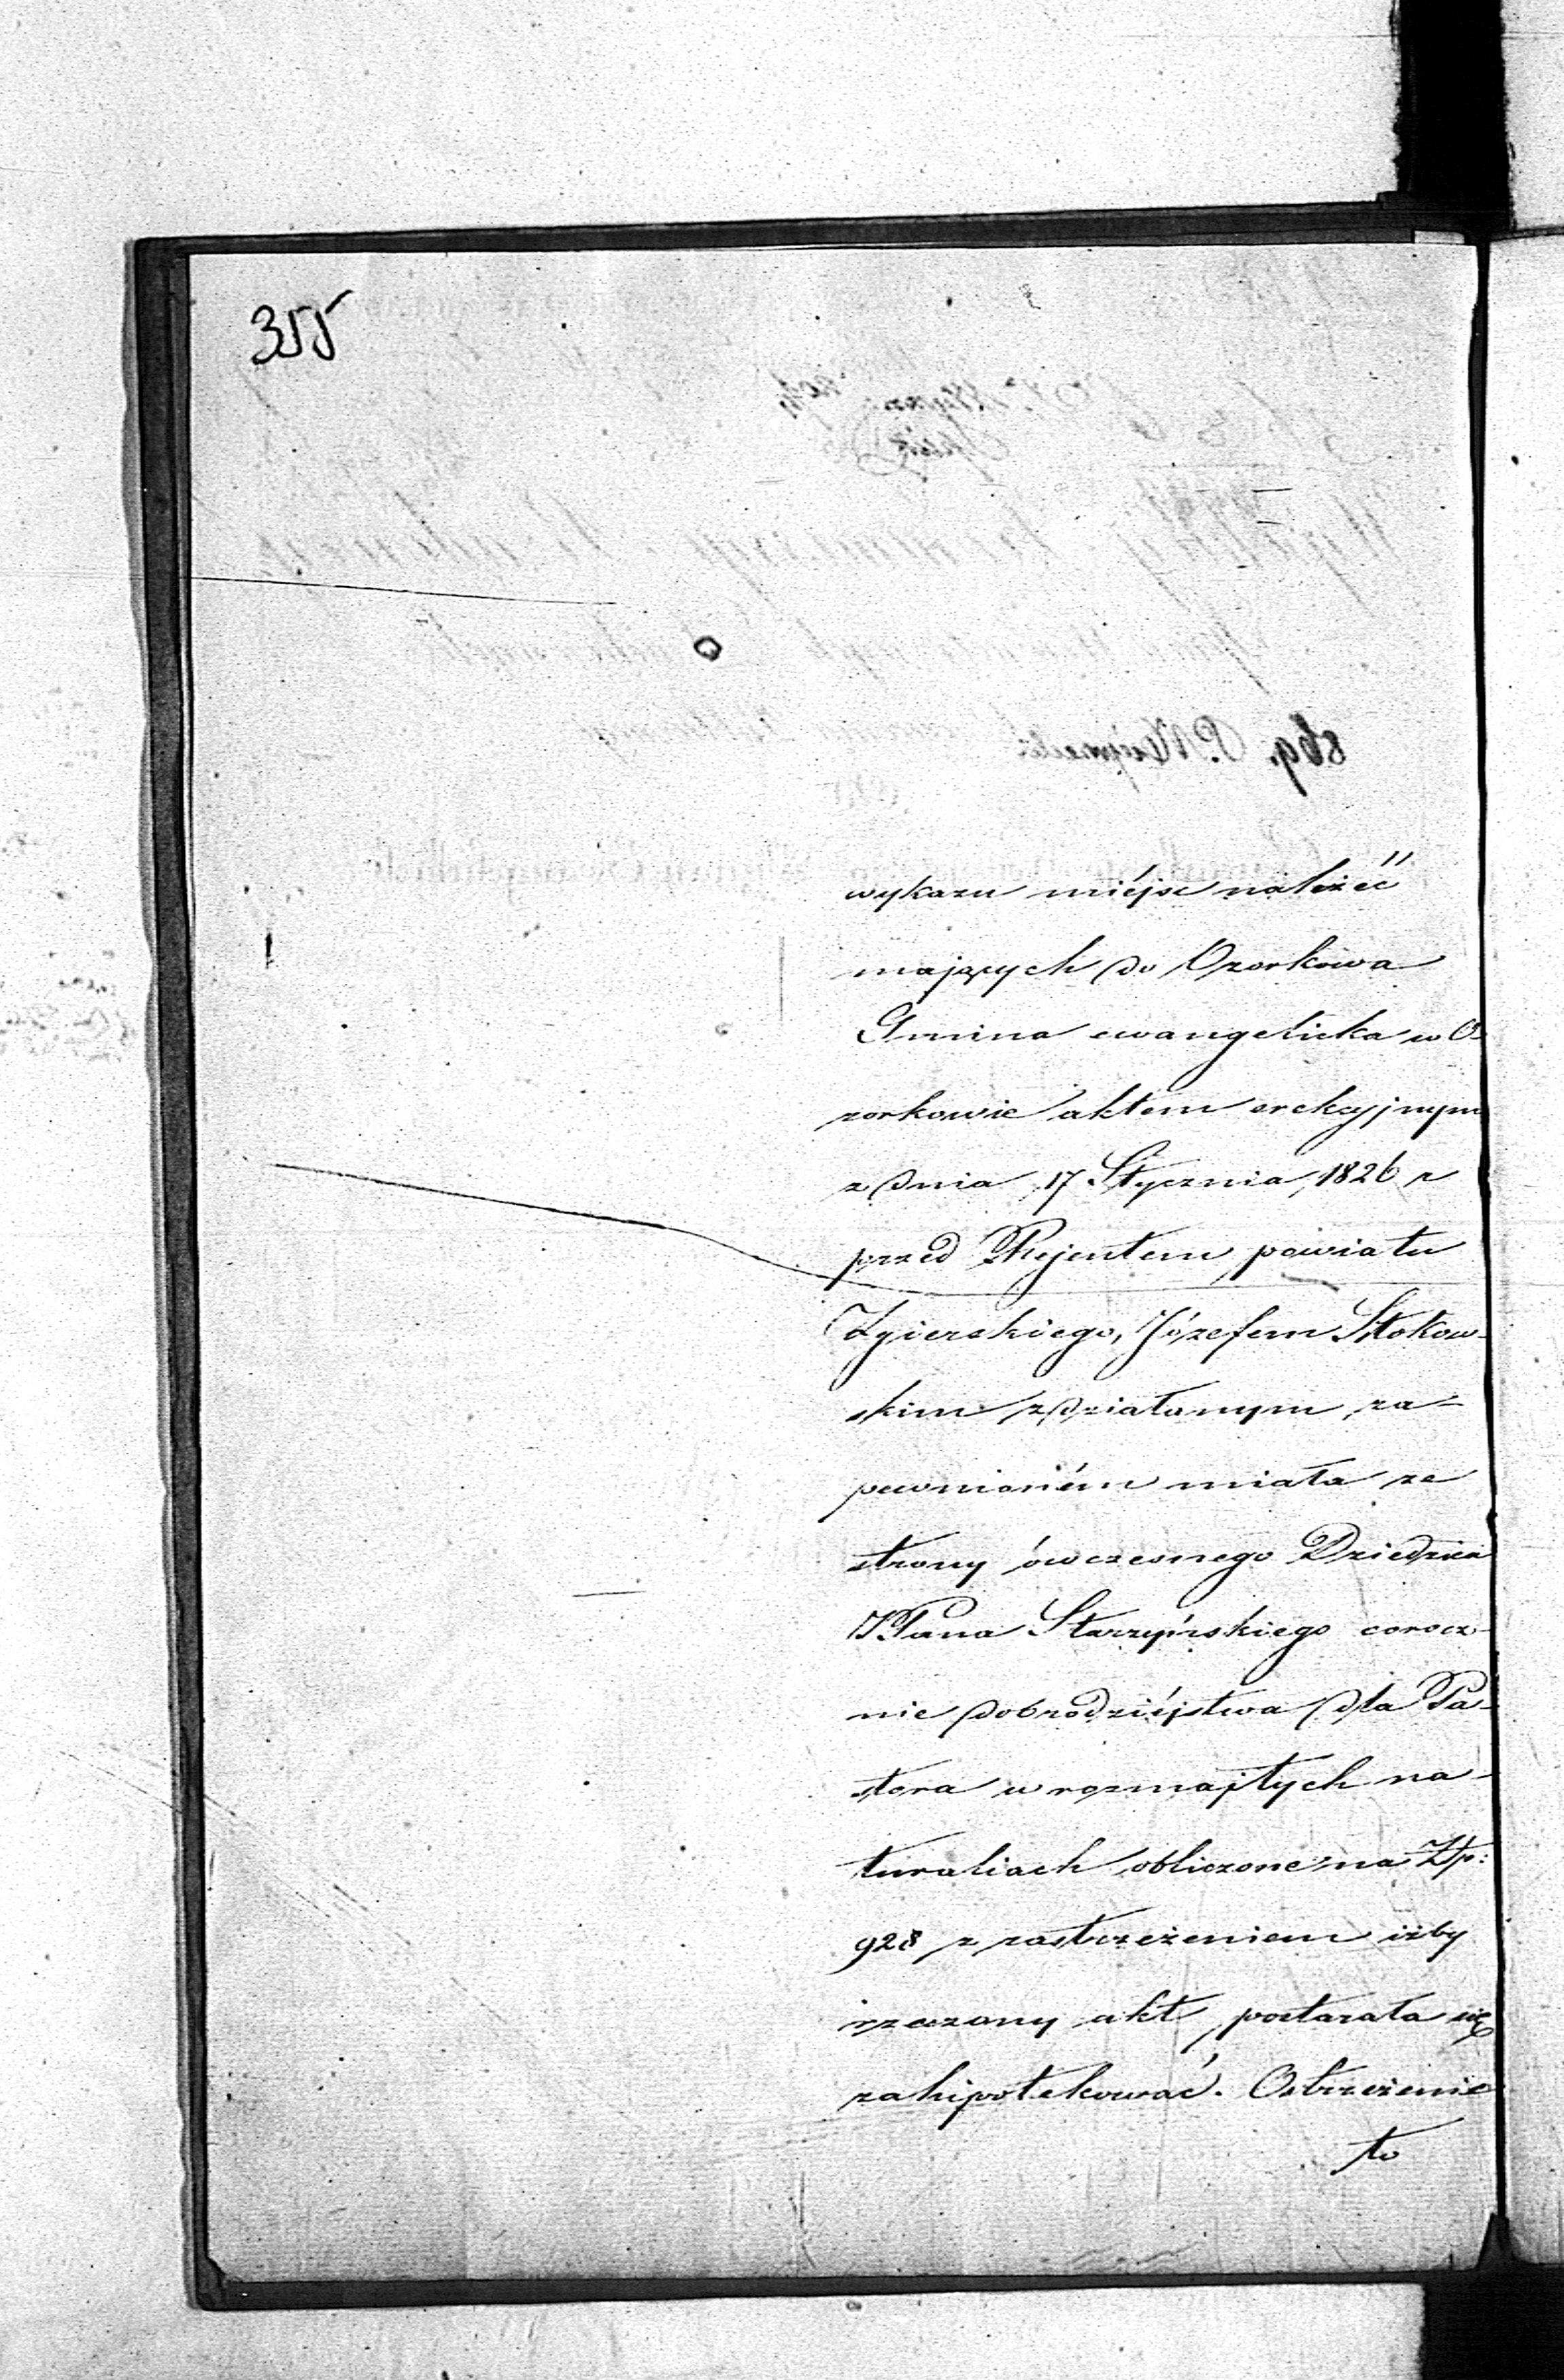 355
wykazu miéjsc należéć
mających do Ozorkowa
Gmina ewangelicka w O-
zorkowie aktem erekcyjnym
z dnia 17 Stycznia 1826 r
przed Rejentem powiatu
Zgierskiego, Józefem Stokow-
skim zdziałanym za-
pewnioném miała ze
strony ówczesnego Dziedzica
JPana Starzyńskiego corocz-
nie dobrodziéjstwa dla Pa-
stora w rozmajtych na-
turaliach obliczone na Złp:
928 z zastrzeżeniem iżby
rzeczony akt postarała się
zahipotekować. Ostrzeżenie
to